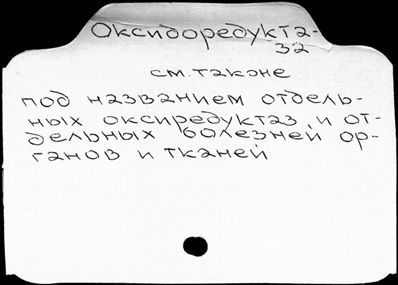 Оксидоредукта-
зз
см. также
под названием отдель-
ных оксиредуктаз и от-
дельных болезней ор-
ганов и тканей